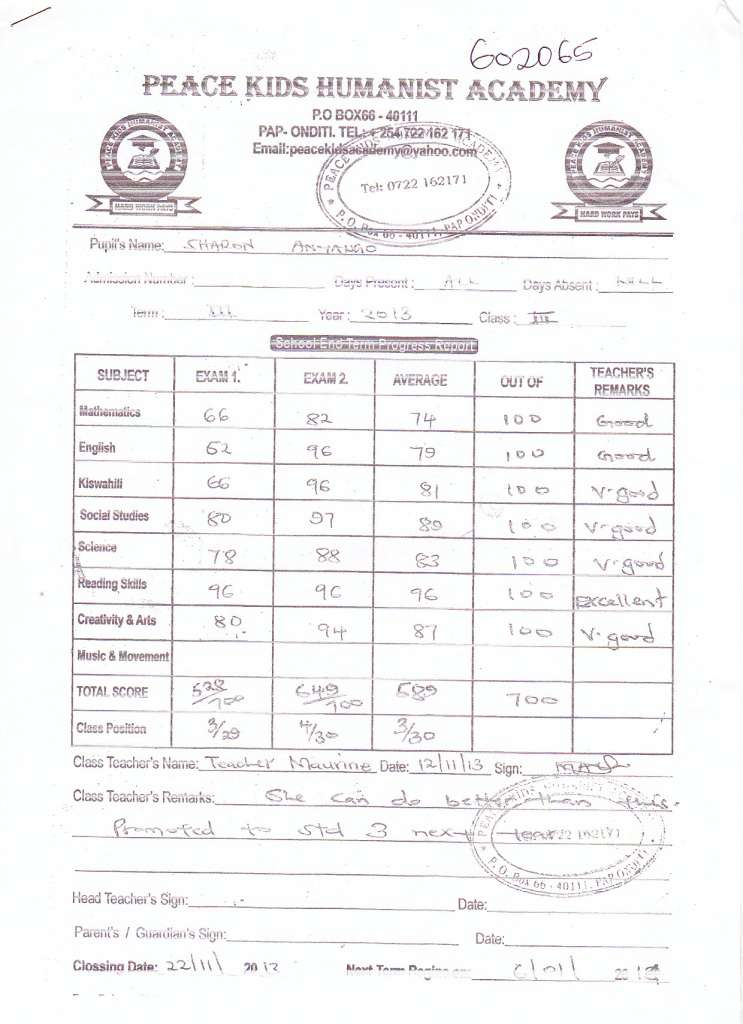 602065
PEACE KIDS HUMANIST ACADEMY
P.O BOX66 - 40111
PAP- ONDITI. TEL:+ 254 722 162 171
Email:peacekidsacademy@yahoo.com
PEACE KIDS HUMANIST ACADEMY
HARD WORK PAYS
PEACE KIDS HUMANIST ACADEMY
HARD WORK PAYS
PEACE KIDS ACADEMY
Tel: 0722 162171
P. O. Box 66 - 40111, PAP ONDITI
Pupil's Name: SHARON ANYANGO
Admission Number : Days Present : ALL Days Absent : NILL
Term : III Year : 2013 Class : III
School End Term Progress Report
SUBJECT EXAM 1. EXAM 2. AVERAGE OUT OF TEACHER'S REMARKS
Mathematics 66 82 74 100 Good
English 62 96 79 100 Good
Kiswahili 66 96 81 100 V.good
Social Studies 80 97 89 100 V.good
Science 78 88 83 100 V.good
Reading Skills 96 96 96 100 Excellent
Creativity & Arts 80 94 87 100 V.good
Music & Movement
TOTAL SCORE 528/700 649/700 589 700
Class Position 3/29 4/30 3/30
Class Teacher's Name: Teacher Maurine Date: 12/11/13 Sign:
Class Teacher's Remarks: She can do better than this.
Promoted to std 3 next year
PEACE KIDS
0722 162171
P. O. Box 66 - 40111, PAP ONDITI
Head Teacher's Sign: Date:
Parent's / Guardian's Sign: Date:
Clossing Date: 22/11/ 2013 Next Term Begins on: 6/01/ 2014